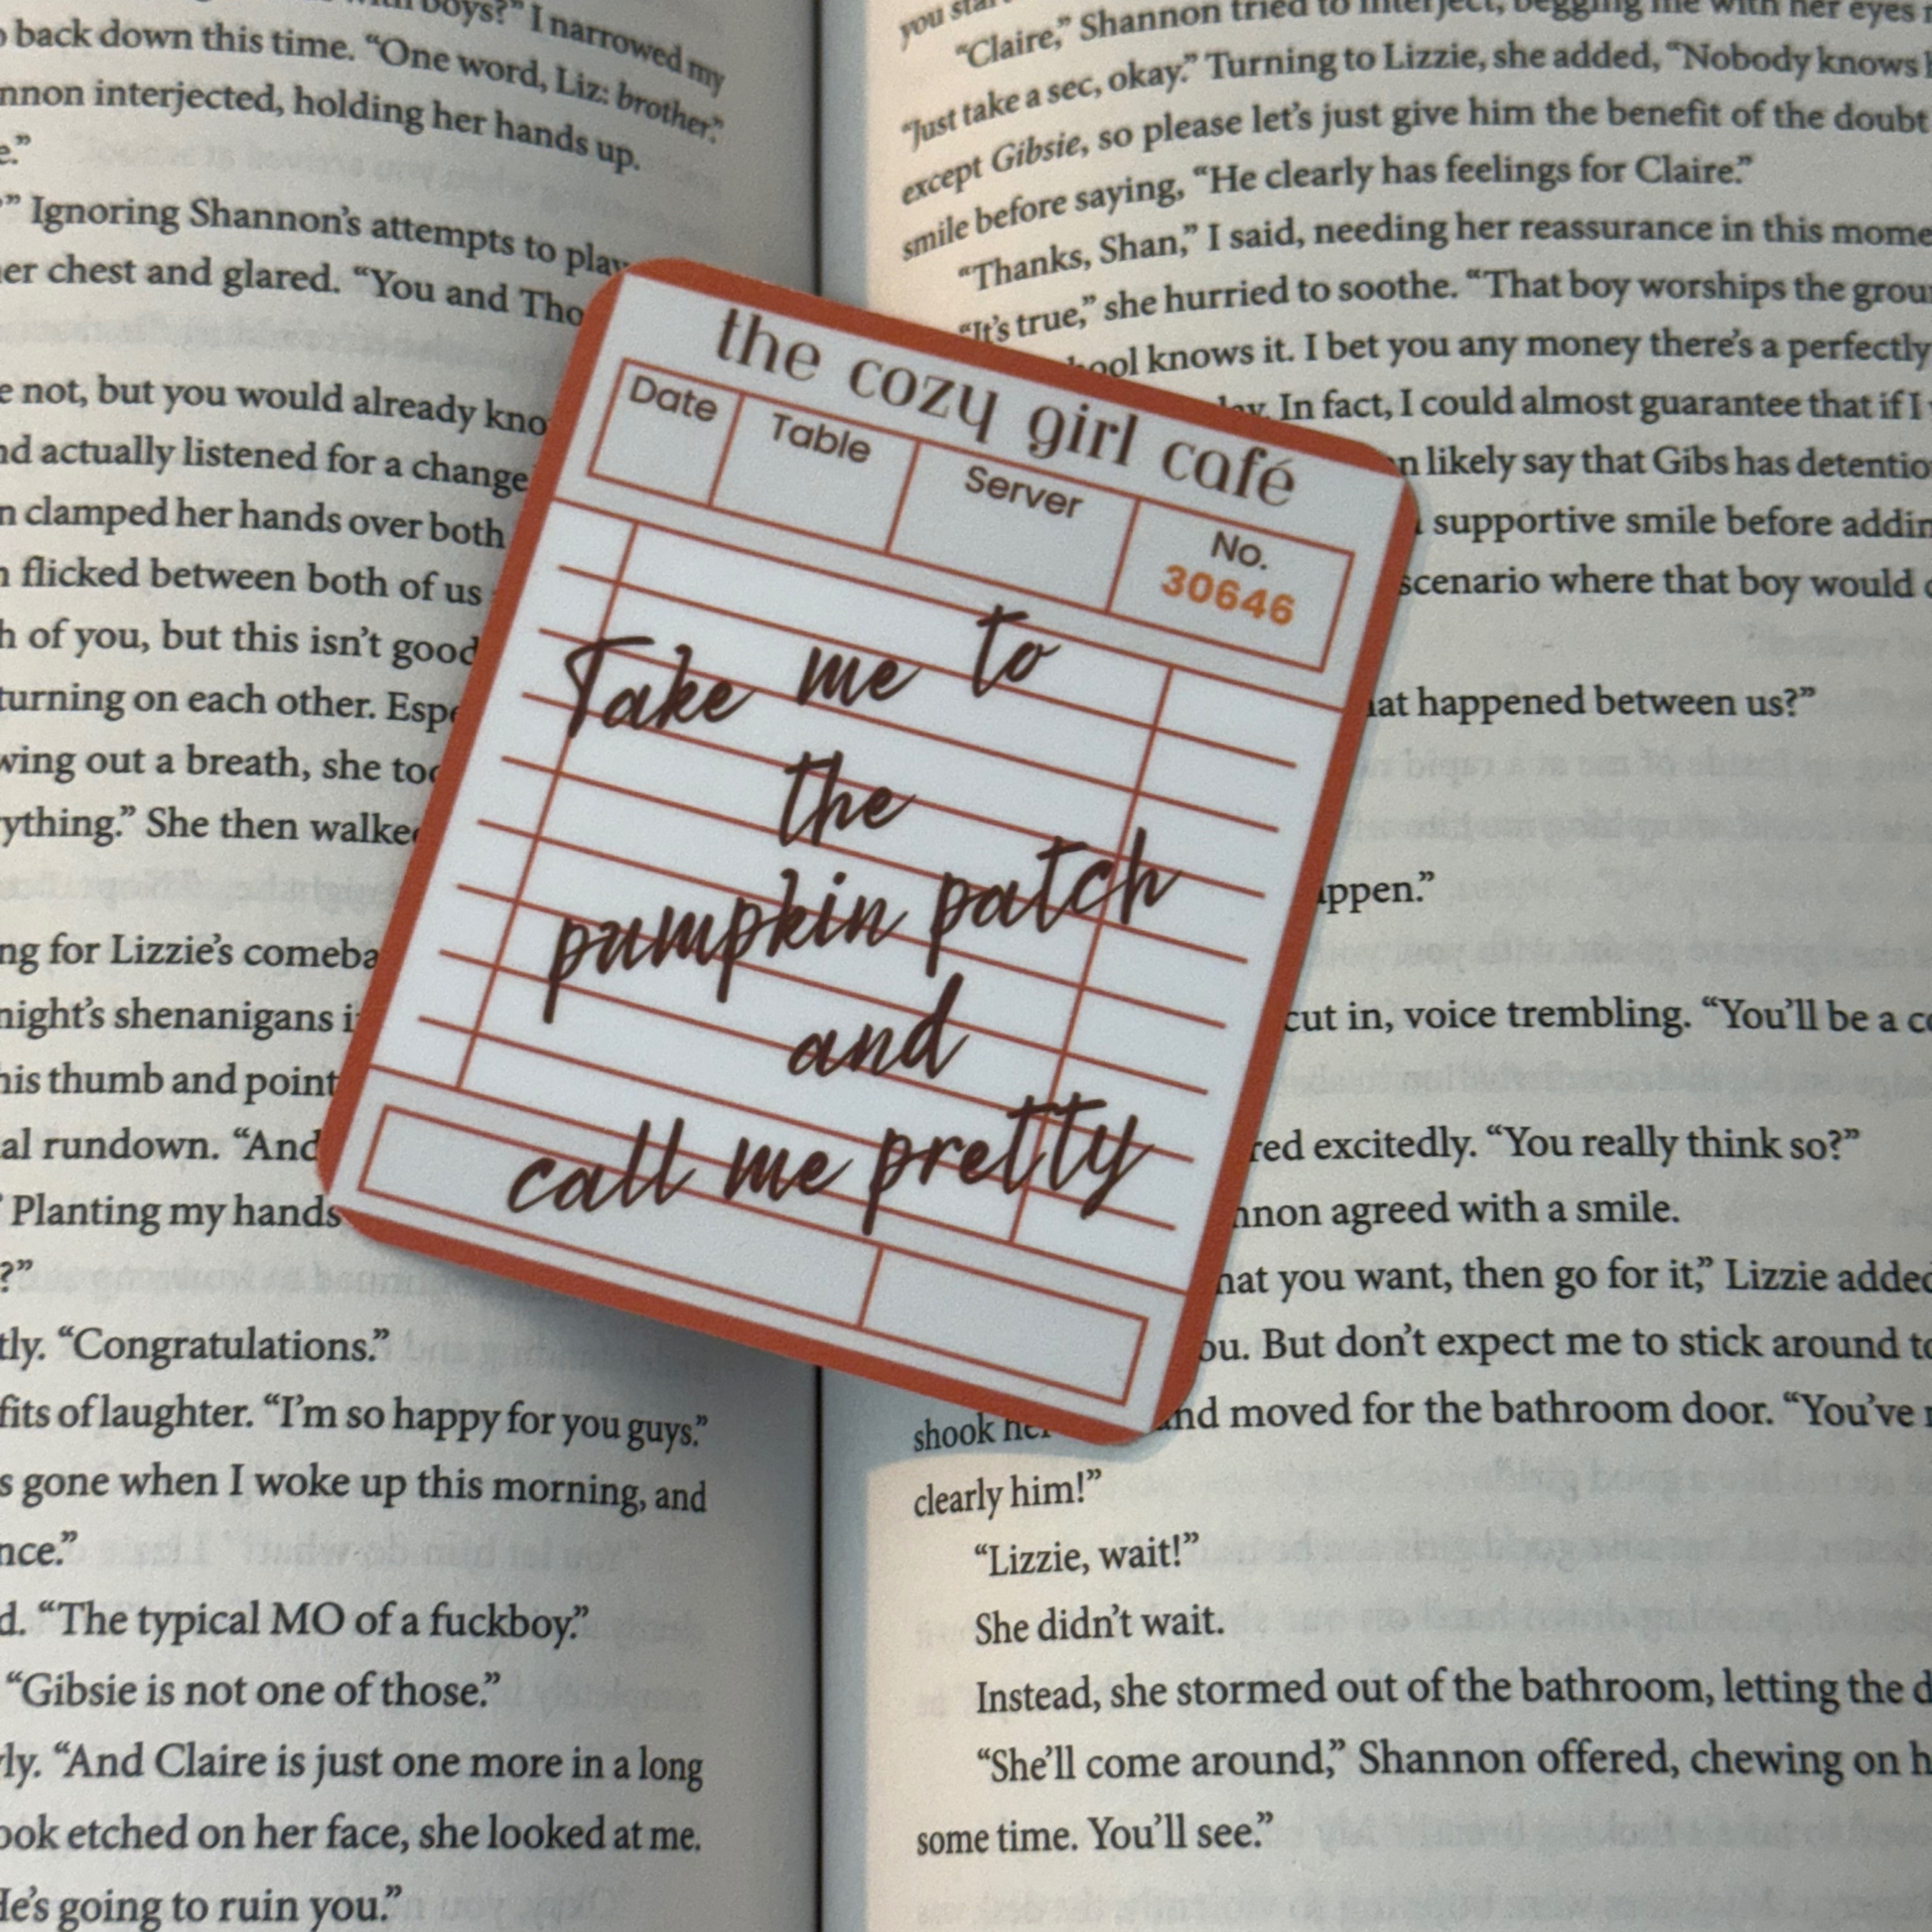 boys?” I narrowed my
back down this time. “One word, Liz: brother.”
interjected, holding her hands up.
” Ignoring Shannon’s attempts to play
chest and glared. “You and
not, but you would already
actually listened for a change
clamped her hands over both
flicked between both of us
of you, but this isn’t good
turning on each other.
out a breath, she
She then
for Lizzie’s
shenanigans
his thumb and
rundown. “And
Planting my hands
?”
“Congratulations.”
fits of laughter. “I’m so happy for you guys.”
gone when I woke up this morning, and
“The typical MO of a fuckboy.”
“Gibsie is not one of those.”
“And Claire is just one more in a long
etched on her face, she looked at me.
going to ruin you.”
the cozy girl café
Date Table Server No.
30646
Take me to
the
pumpkin patch
and
call me pretty
you
“Claire,” Shannon tried to interject, begging me with her eyes
“Just take a sec, okay.” Turning to Lizzie, she added, “Nobody knows
except Gibsie, so please let’s just give him the benefit of the doubt
smile before saying, “He clearly has feelings for Claire.”
“Thanks, Shan,” I said, needing her reassurance in this
“It’s true,” she hurried to soothe. “That boy worships the
knows it. I bet you any money there’s a perfectly
In fact, I could almost guarantee that if I
likely say that Gibs has
supportive smile before
scenario where that boy would
happened between us?”
cut in, voice trembling. “You’ll be a
excitedly. “You really think so?”
agreed with a smile.
you want, then go for it,” Lizzie added
But don’t expect me to stick around
shook and moved for the bathroom door. “You’ve
clearly him!”
“Lizzie, wait!”
She didn’t wait.
Instead, she stormed out of the bathroom, letting the
“She’ll come around,” Shannon offered, chewing on
some time. You’ll see.”